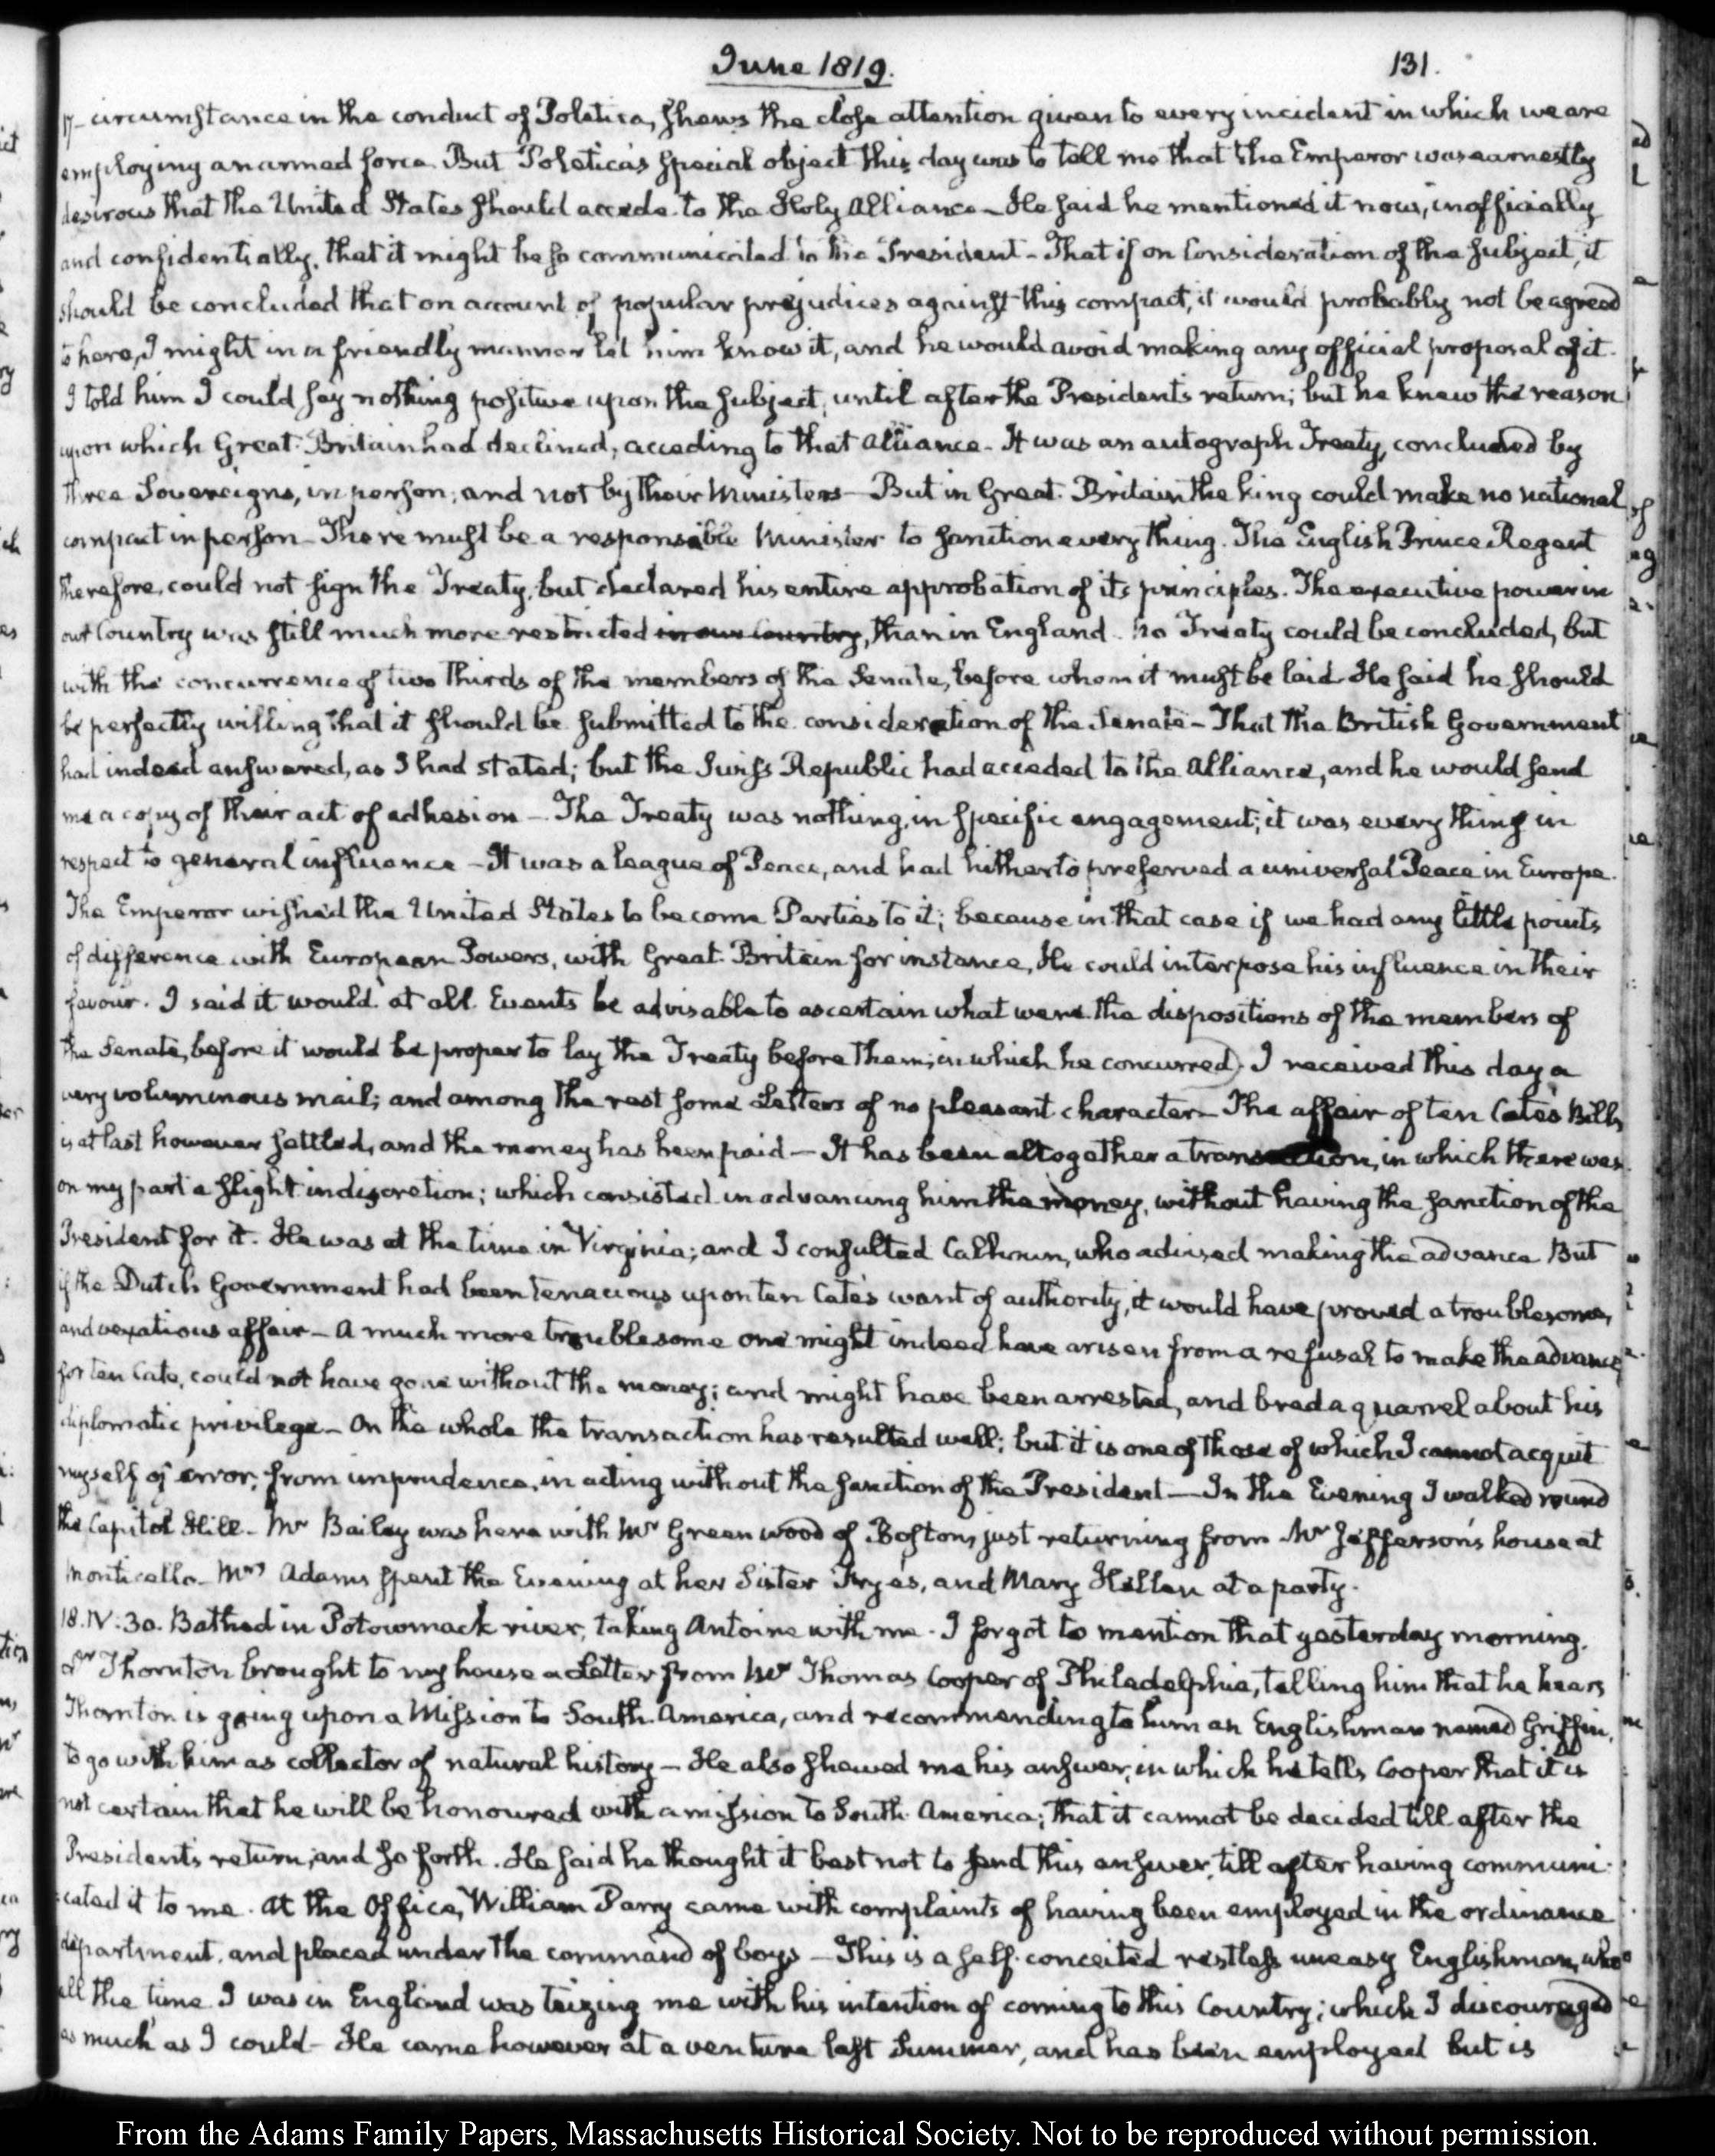 June 1819.
131.
17- circumstance in the conduct of Poletica, shews the close attention given to every incident in which we are
employing an armed force. But Poletica's special object this day was to tell me that the Emperor was earnestly
desirous that the United States should accede to the Holy Alliance - He said he mentioned it now, inofficially
and confidentially, that it might be so communicated to the President - That if on Consideration of the subject, it
should be concluded that on account of popular prejudices against this compact, it would probably not be agreed
to here, I might in a friendly manner let him know it, and he would avoid making any official proposal of it.
I told him I could say nothing positive upon the subject, until after the President's return; but he knew the reason
upon which Great-Britain had declined, acceding to that Alliance - It was an autograph Treaty, concluded by
three Sovereigns, in person, and not by their Ministers - But in Great-Britain the king could make no national
compact in person - There must be a responsible Minister to sanction every thing. The English Prince Regent
therefore, could not sign the Treaty, but declared his entire approbation of its principles. The executive power in
our Country was still much more restricted in our Country, than in England. No Treaty could be concluded, but
with the concurrence of two thirds of the members of the Senate, before whom it must be laid - He said he should
be perfectly willing that it should be submitted to the consideration of the Senate - That the British Government
had indeed answered, as I had stated; but the Swiss Republic had acceded to the Alliance, and he would send
me a copy of their act of adhesion - The Treaty was nothing, in specific engagement; it was every thing in
respect to general influence - It was a league of Peace, and had hitherto preserved a universal Peace in Europe.
The Emperor wished the United States to become Parties to it; because in that case if we had any little points
of difference with European Powers, with Great-Britain for instance, He could interpose his influence in their
favour. I said it would at all Events be advisable to ascertain what were the dispositions of the members of
the Senate, before it would be proper to lay the Treaty before them; in which he concurred. I received this day a
very voluminous mail; and among the rest some Letters of no pleasant character - The affair of ten Cate's Bills
is at last however settled, and the money has been paid - It has been altogether a transaction, in which there was
on my part a slight indiscretion; which consisted in advancing him the money, without having the sanction of the
President for it. He was at the time in Virginia; and I consulted Calhoun, who advised making the advance But
if the Dutch Government had been tenacious upon ten Cate's want of authority, it would have proved a troublesome,
and vexatious affair - A much more troublesome one might indeed have arisen from a refusal to make the advance,
for ten Cate, could not have gone without the money; and might have been arrested, and bred a quarrel about his
diplomatic privilege - On the whole the transaction has resulted well; but it is one of those of which I cannot acquit
myself of error, from imprudence, in acting without the sanction of the President - In the Evening I walked round
the Capitol Hill - Mr Bailey was here with Mr Greenwood of Boston, just returning from Mr Jefferson's house at
Monticello - Mrs Adams spent the Evening at her Sister Frye's, and Mary Hellen at a party.
18. IV:30. Bathed in Potowmack river, taking Antoine with me. I forgot to mention that yesterday morning,
Dr Thornton brought to my house a Letter from Mr Thomas Cooper of Philadelphia, telling him that he hears
Thornton is going upon a Mission to South-America, and recommending to him an Englishman named Griffin,
to go with him as collector of natural history - He also shewed me his answer, in which he tells Cooper that it is
not certain that he will be honoured with a mission to South-America; that it cannot be decided till after the
President's return, and so forth. He said he thought it best not to send this answer, till after having communi-
cated it to me. At the Office, William Parry came with complaints of having been employed in the ordinance
department, and placed under the command of boys - This is a self-conceited restless uneasy Englishman, who
all the time I was in England was teizing me with his intention of coming to this Country; which I discouraged
as much as I could - He came however at a venture last Summer, and has been employed but is
From the Adams Family Papers, Massachusetts Historical Society. Not to be reproduced without permission.